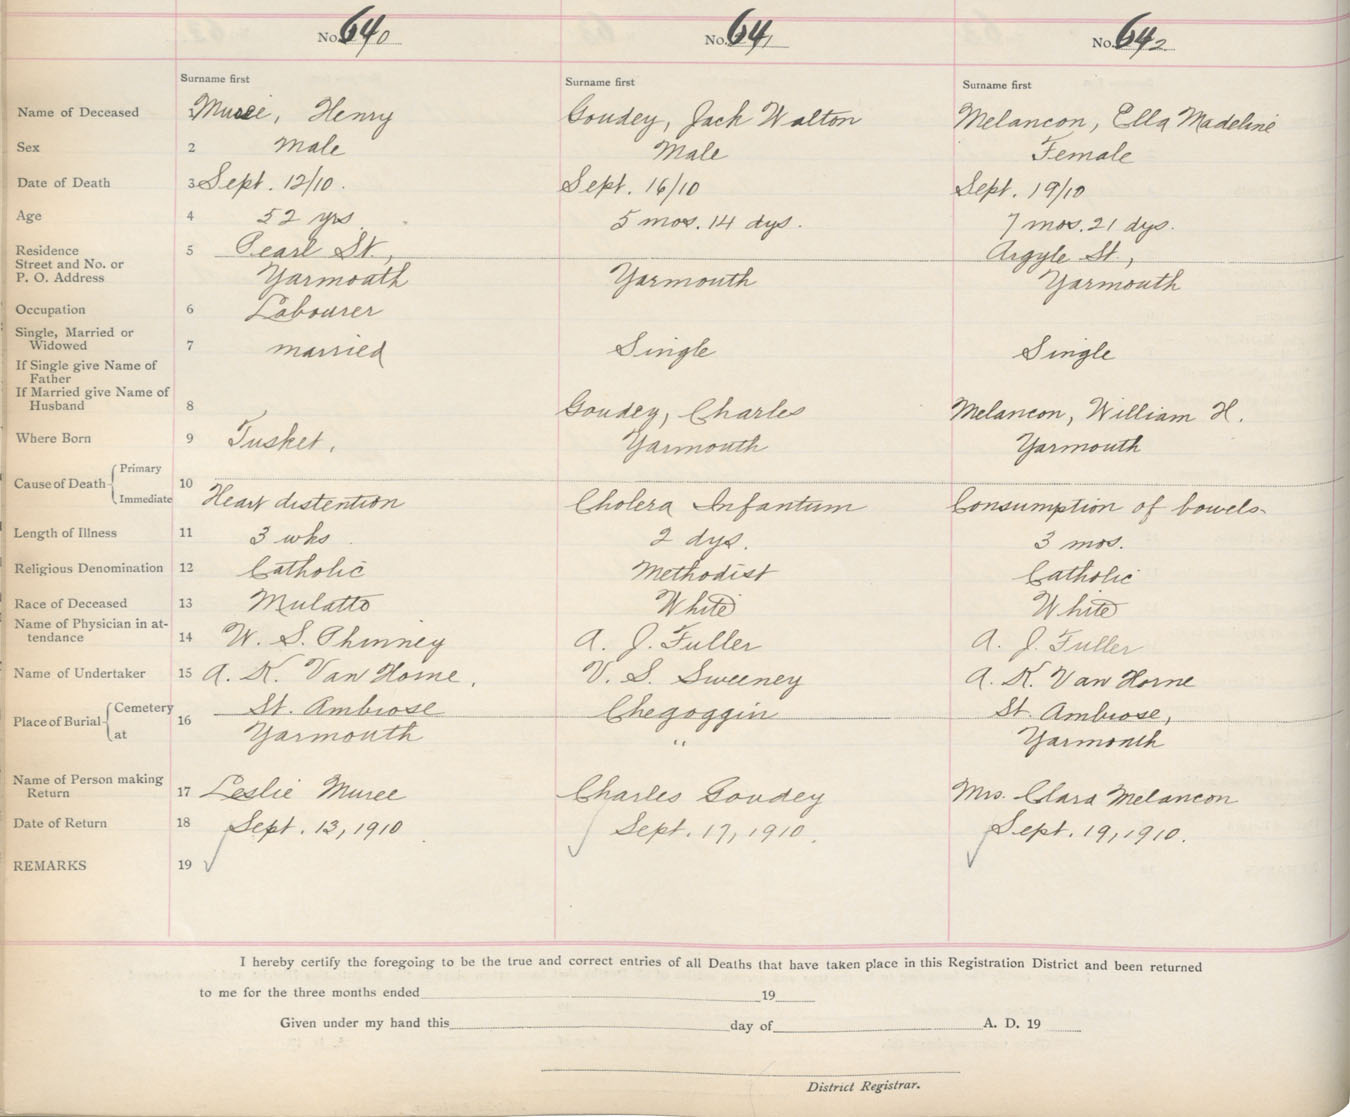 No. 640 No. 641 No. 642
Surname first Surname first Surname first
Name of Deceased 1 Muree, Henry Goudey, Jack Walton Melancon, Ella Madeline
Sex 2 Male Male Female
Date of Death 3 Sept. 12/10. Sept. 16/10 Sept. 19/10
Age 4 52 yrs. 5 mos. 14 dys. 7 mos. 21 dys.
Residence 5 Pearl St., Argyle St.,
Street and No. or
P. O. Address Yarmouth Yarmouth Yarmouth
Occupation 6 Labourer
Single, Married or
Widowed 7 married Single Single
If Single give Name of
Father
If Married give Name of
Husband 8 Goudey, Charles Melancon, William H.
Where Born 9 Tusket, Yarmouth Yarmouth
Cause of Death Primary
10
Immediate Heart distention Cholera Infantum Consumption of bowels-
Length of Illness 11 3 wks. 2 dys. 3 mos.
Religious Denomination 12 Catholic Methodist Catholic
Race of Deceased 13 Mulatto White White
Name of Physician in at-
tendance 14 W. S. Phinney A. J. Fuller A. J. Fuller
Name of Undertaker 15 A. K. Van Horne. V. S. Sweeney A. K. Van Horne
Place of Burial Cemetery 16 St. Ambrose Chegoggin St. Ambrose,
at Yarmouth " Yarmouth
Name of Person making
Return 17 Leslie Muree Charles Goudey Mrs. Clara Melancon
Date of Return 18 Sept. 13, 1910 Sept. 17, 1910. Sept. 19, 1910.
REMARKS 19
I hereby certify the foregoing to be the true and correct entries of all Deaths that have taken place in this Registration District and been returned
to me for the three months ended 19
Given under my hand this day of A. D. 19
District Registrar.